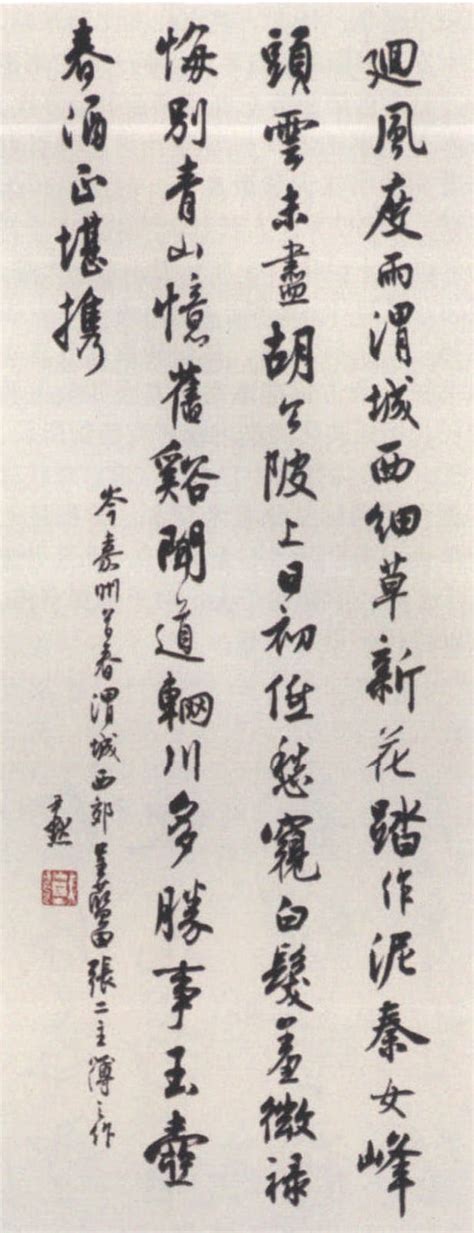 廻風度雨渭城西細草新花踏作泥秦女峰
頭雪未盡胡公陂上日初低愁窺白髮羞微祿
悔別青山憶舊谿聞道輞川多勝事玉壺
春酒正堪携
岑嘉州首春渭城西郊呈藍田張二主簿之作
尹默